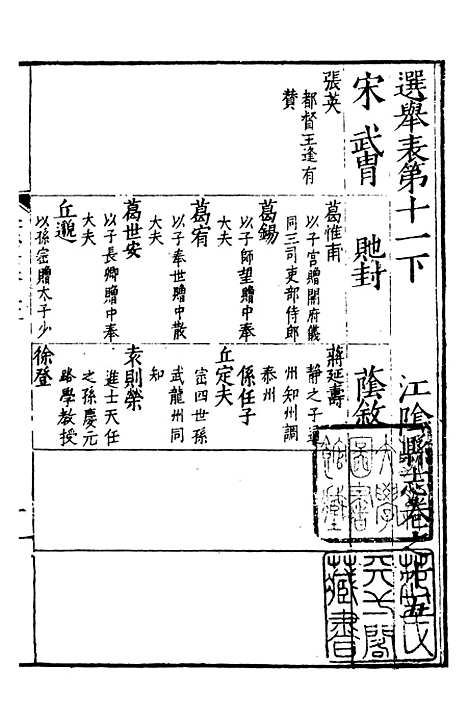 選舉表第十一下
江陰縣志卷之十五
宋
武冑
貤封
蔭敘
張英
都督王逢有
贊
葛惟甫
以子宮贈開府儀
同三司吏部侍郎
葛錫
以子師望贈中奉
大夫
葛宥
以子奉世贈中散
大夫
葛世安
以子長卿贈中奉
大夫
丘邈
以孫崈贈太子少
蔣延壽
靜之子通
州知州調
泰州
係任子
丘定夫
崈四世孫
武龍州同
知
袁則榮
進士天任
之孫慶元
路學教授
徐登
天一閣
藏書